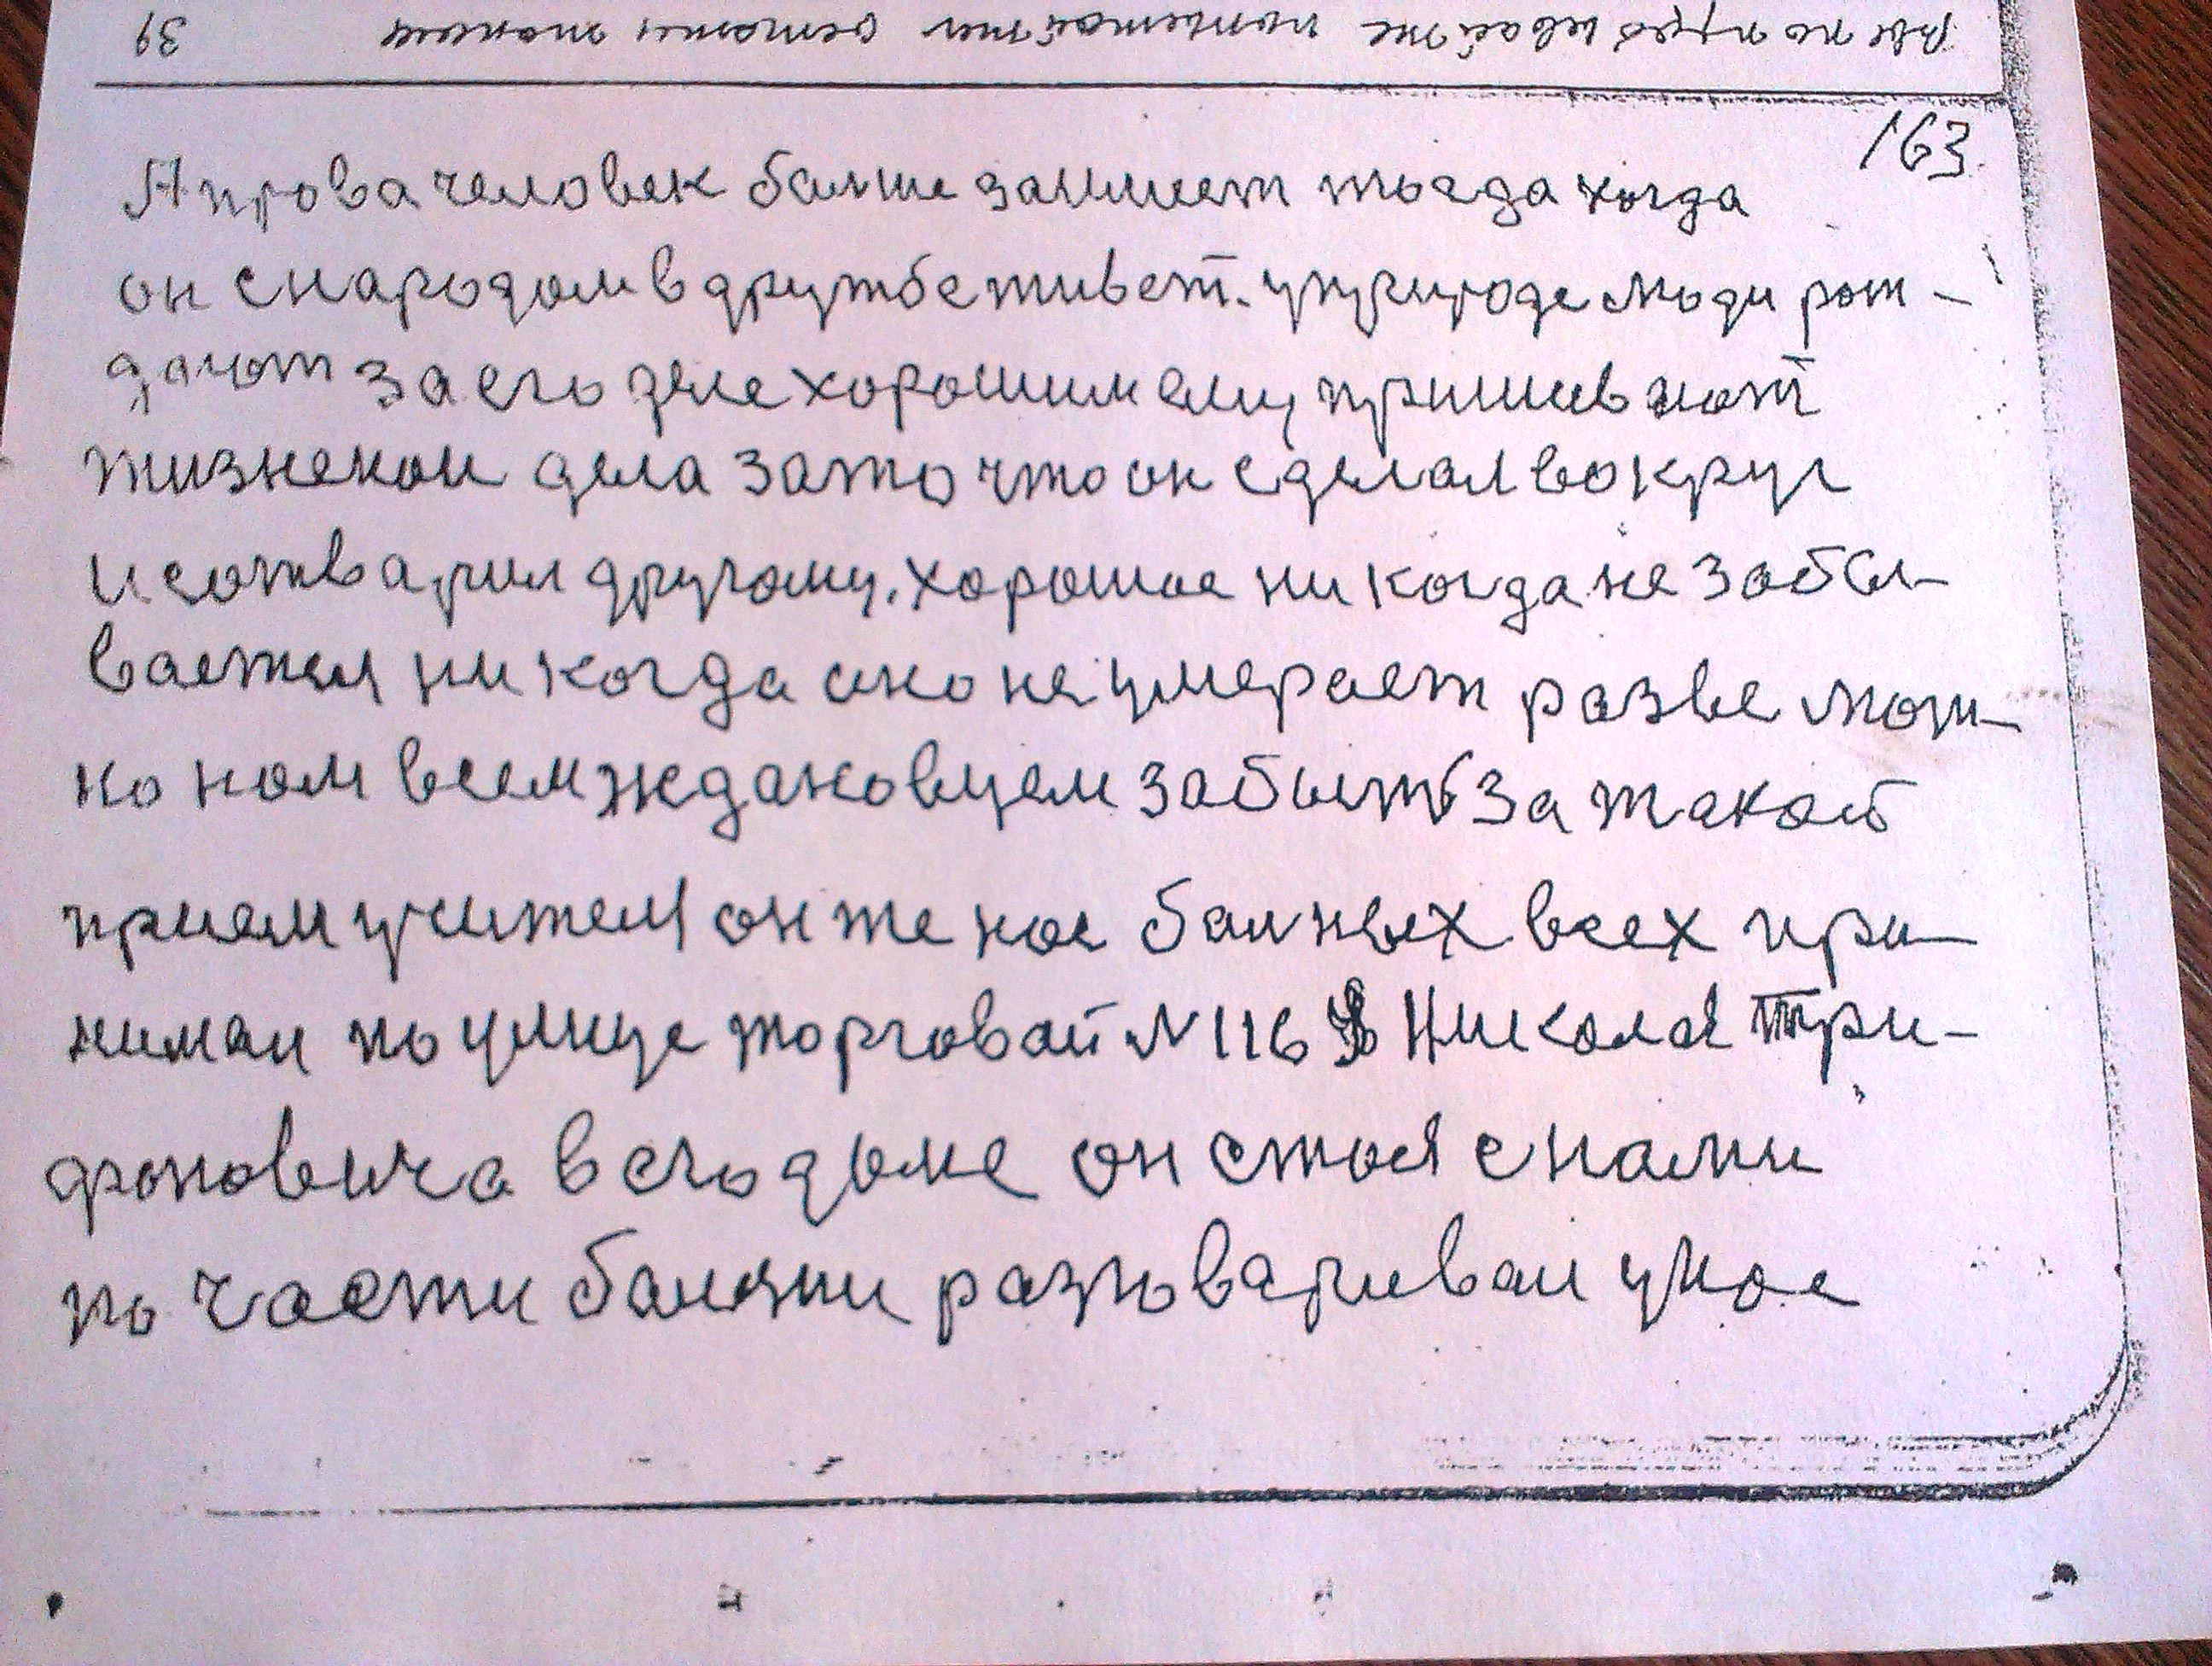 39
163
А права человек болше занимает тогда когда
он с народом в дружбе живет. у природе люди рож-
дают за его деле хорошим ему пришивают
жизнекои дела за то что он сделал вокруг
и сотварил другому. хорошое никогда не забы-
вается никогда оно не умерает разве мож-
но нам всем ждановцем забыть за такой
прием учителя он же нас болных всех при-
нимал по улице торговай N 116 Николая Три-
фоновича в его доме он стоя с нами
по части болезни разговаривал у нас